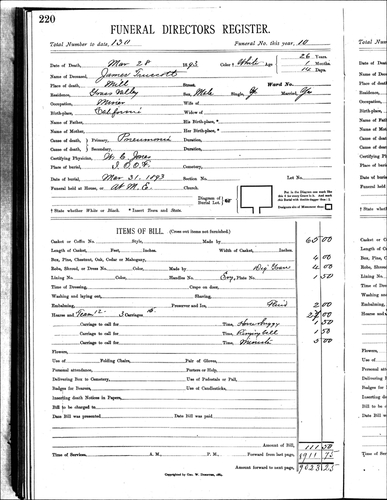 220
FUNERAL DIRECTORS REGISTER.
Total Number to date, 1311 Funeral No. this year, 10
Date of Death, Mar 28 1893 Color † White Age 26 Years
1 Months
14 Days
Name of Deceased, James Truscott
Place of death, Mill Street. Ward No.
Residence, Grass Valley Sex, Male Single, Married,
Occupation, Miner Wife of
Birthplace, California Widow of
Name of Father, His Birthplace, *
Name of Mother, Her Birthplace, *
Cause of death Primary, Pneumonia Duration,
Cause of death Secondary, Duration,
Certifying Physician, W. C. Jones
Place of burial, I.O.O.F. Cemetery,
Date of burial, Mar 31. 1893 Section No. Lot No.
Funeral held at House, or At M.E. Church.
Diagram of Burial Lot.
† State whether White or Black. * Insert Town and State.
ITEMS OF BILL. (Cross out items not furnished.)
Casket or Coffin No. Style, Made by 65 00
Length of Casket, Feet, Inches. Width of Casket, Inches.
Box, Pine, Chestnut, Oak, Cedar or Mahogany, 4 00
Robe, Shroud, or Dress No. Color, Made by Dig Grave 4 00
Lining No. Color, Handles No. Eng, Plate No. 1 50
Time of Dressing, Corps on door,
Washing and laying out, Shaving,
Embalming, Preserver and Ice, Fluid 2 00
Hearse and Team 12. 3 Carriages 15. 00
Carriage to call for Time, Horse buggy 1 50
Carriage to call for Time, Ringing bell 1 50
Carriage to call for Time, 5 00
Flowers,
Use of Folding Chairs, Pair of Gloves,
Personal attendance, Porters or Help,
Delivering Box to Cemetery, Use of Pedestals or Fall,
Badges for Bearers, Use of Candlesticks,
Inserting death Notices in Papers,
Bill to be charged to
Date Bill was presented Date Bill was paid
Amount of Bill, 111 50
Time of Services, A. M., P. M. Forward from last page, 8911 75
Amount forward to next page, 9023 25